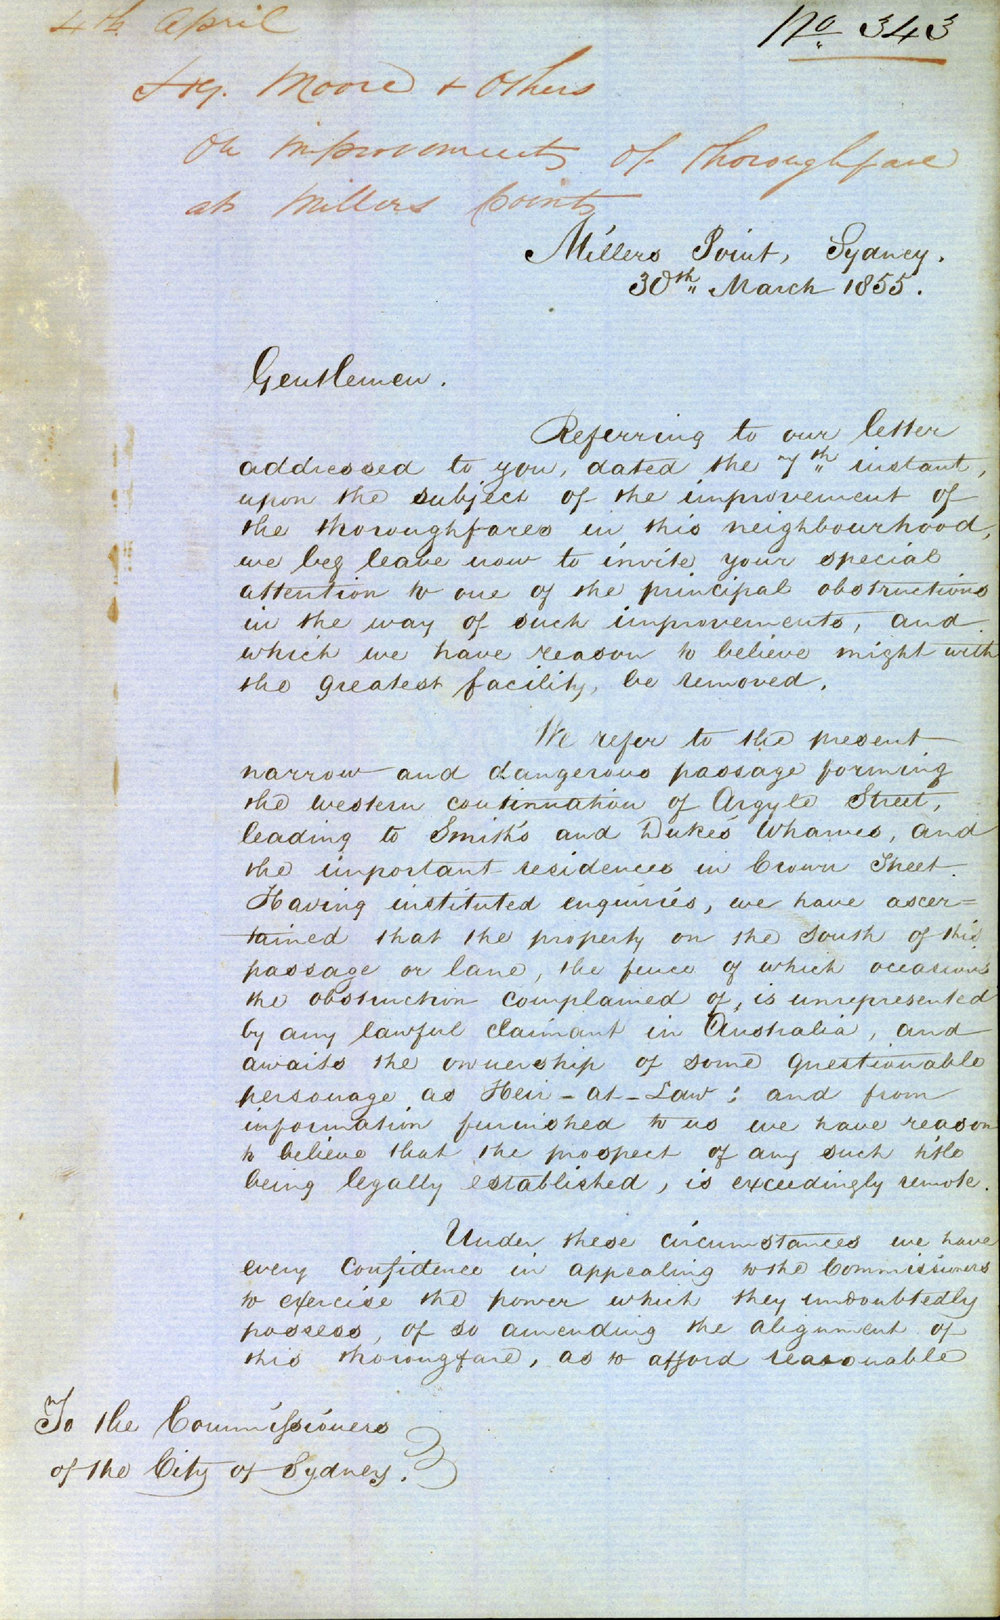 4th April
No. 343
Moore & Others
On improvements of thoroughfare
at Millers Points
Millers Point, Sydney.
30th March 1855.
Gentlemen.
Referring to our letter
addressed to you, dated the 7th instant,
upon the subject of the improvement of
the thoroughfares in this neighbourhood,
we beg leave now to invite your special
attention to one of the principal obstructions
in the way of such improvements, and
which we have reason to believe might with
the greatest facility, be removed.
We refer to the present
narrow and dangerous passage forming
the western continuation of Argyle Street,
leading to Smith's and Duke's Wharves, and
the important residences in Crown Street.
Having instituted enquiries, we have ascer=
tained that the property on the South of this
passage or lane, the fence of which occasions
the obstruction complained of, is unrepresented
by any lawful claimant in Australia, and
awaits the ownership of some questionable
personage as Heir-at-Law; and from
information furnished to us we have reason
to believe that the prospect of any such title
being legally established, is exceedingly remote.
Under these circumstances we have
every confidence in appealing to the Commissioners
to exercise the power which they undoubtedly
possess, of so amending the alignment of
this thorougfare, as to afford reasonable
To the Commissioners
of the City of Sydney.